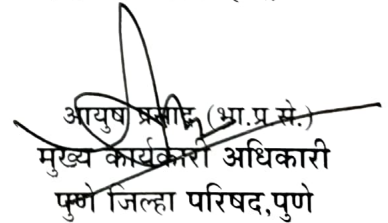 आयुष प्रसाद (भा.प्र.से.)
मुख्य कार्यकारी अधिकारी
पुणे जिल्हा परिषद,पुणे